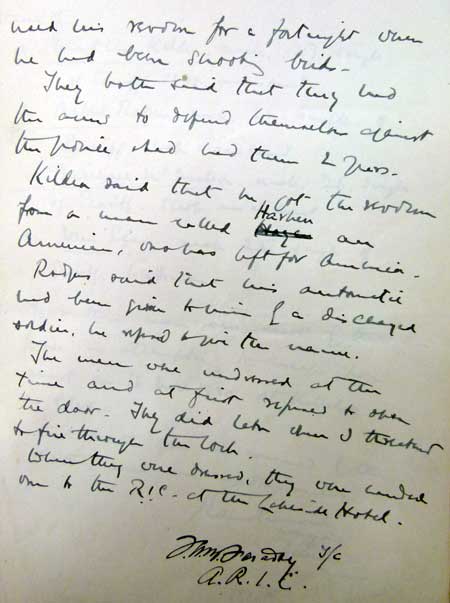 used his revolver for a fortnight when
he had been shooting birds.
They both said that they had
the arms to defend themselves against
the police & had had them 2 years.
Killea said that he got the revolver
from a man called Harben an
American, who has left for America.
Rodgers said that his automatic
had been given to him by a discharged
soldier, he refused to give the name.
The men were undressed at the
time and at first refused to open
the door. They did later when I threatened
to fire through the lock.
When they were dressed, they were handed
over to the R.I.C. at the Lakeside Hotel.
T/C
A.R.I.C.